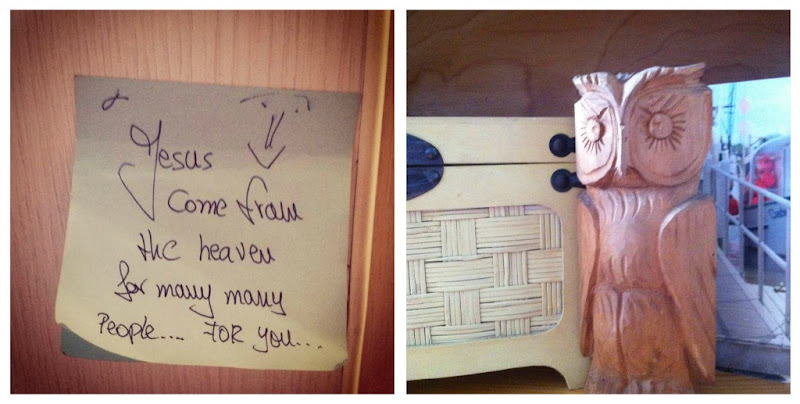 Jesus
Come from
the heaven
for many many
People.... FOR YOU...